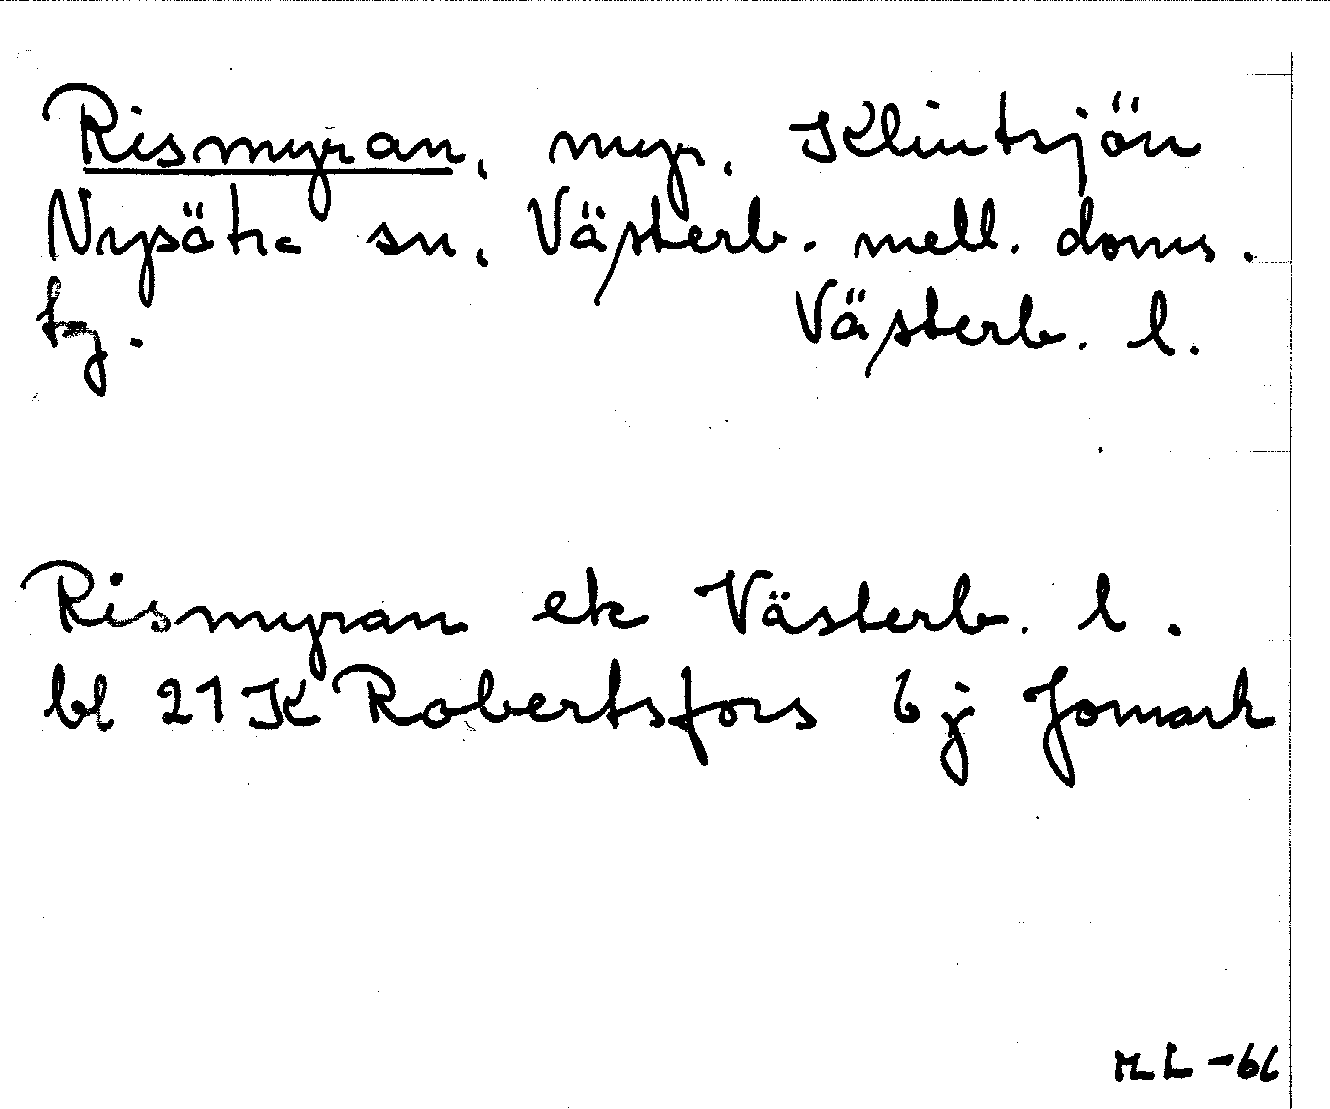 Rismyran, myr, Klintsjön
Nysätra sn, Västerb. mell. doms.
by. Västerb. l.
Rismyran ek Västerb. l.
bl 21K Robertsfors 6j Jomark
ML -66